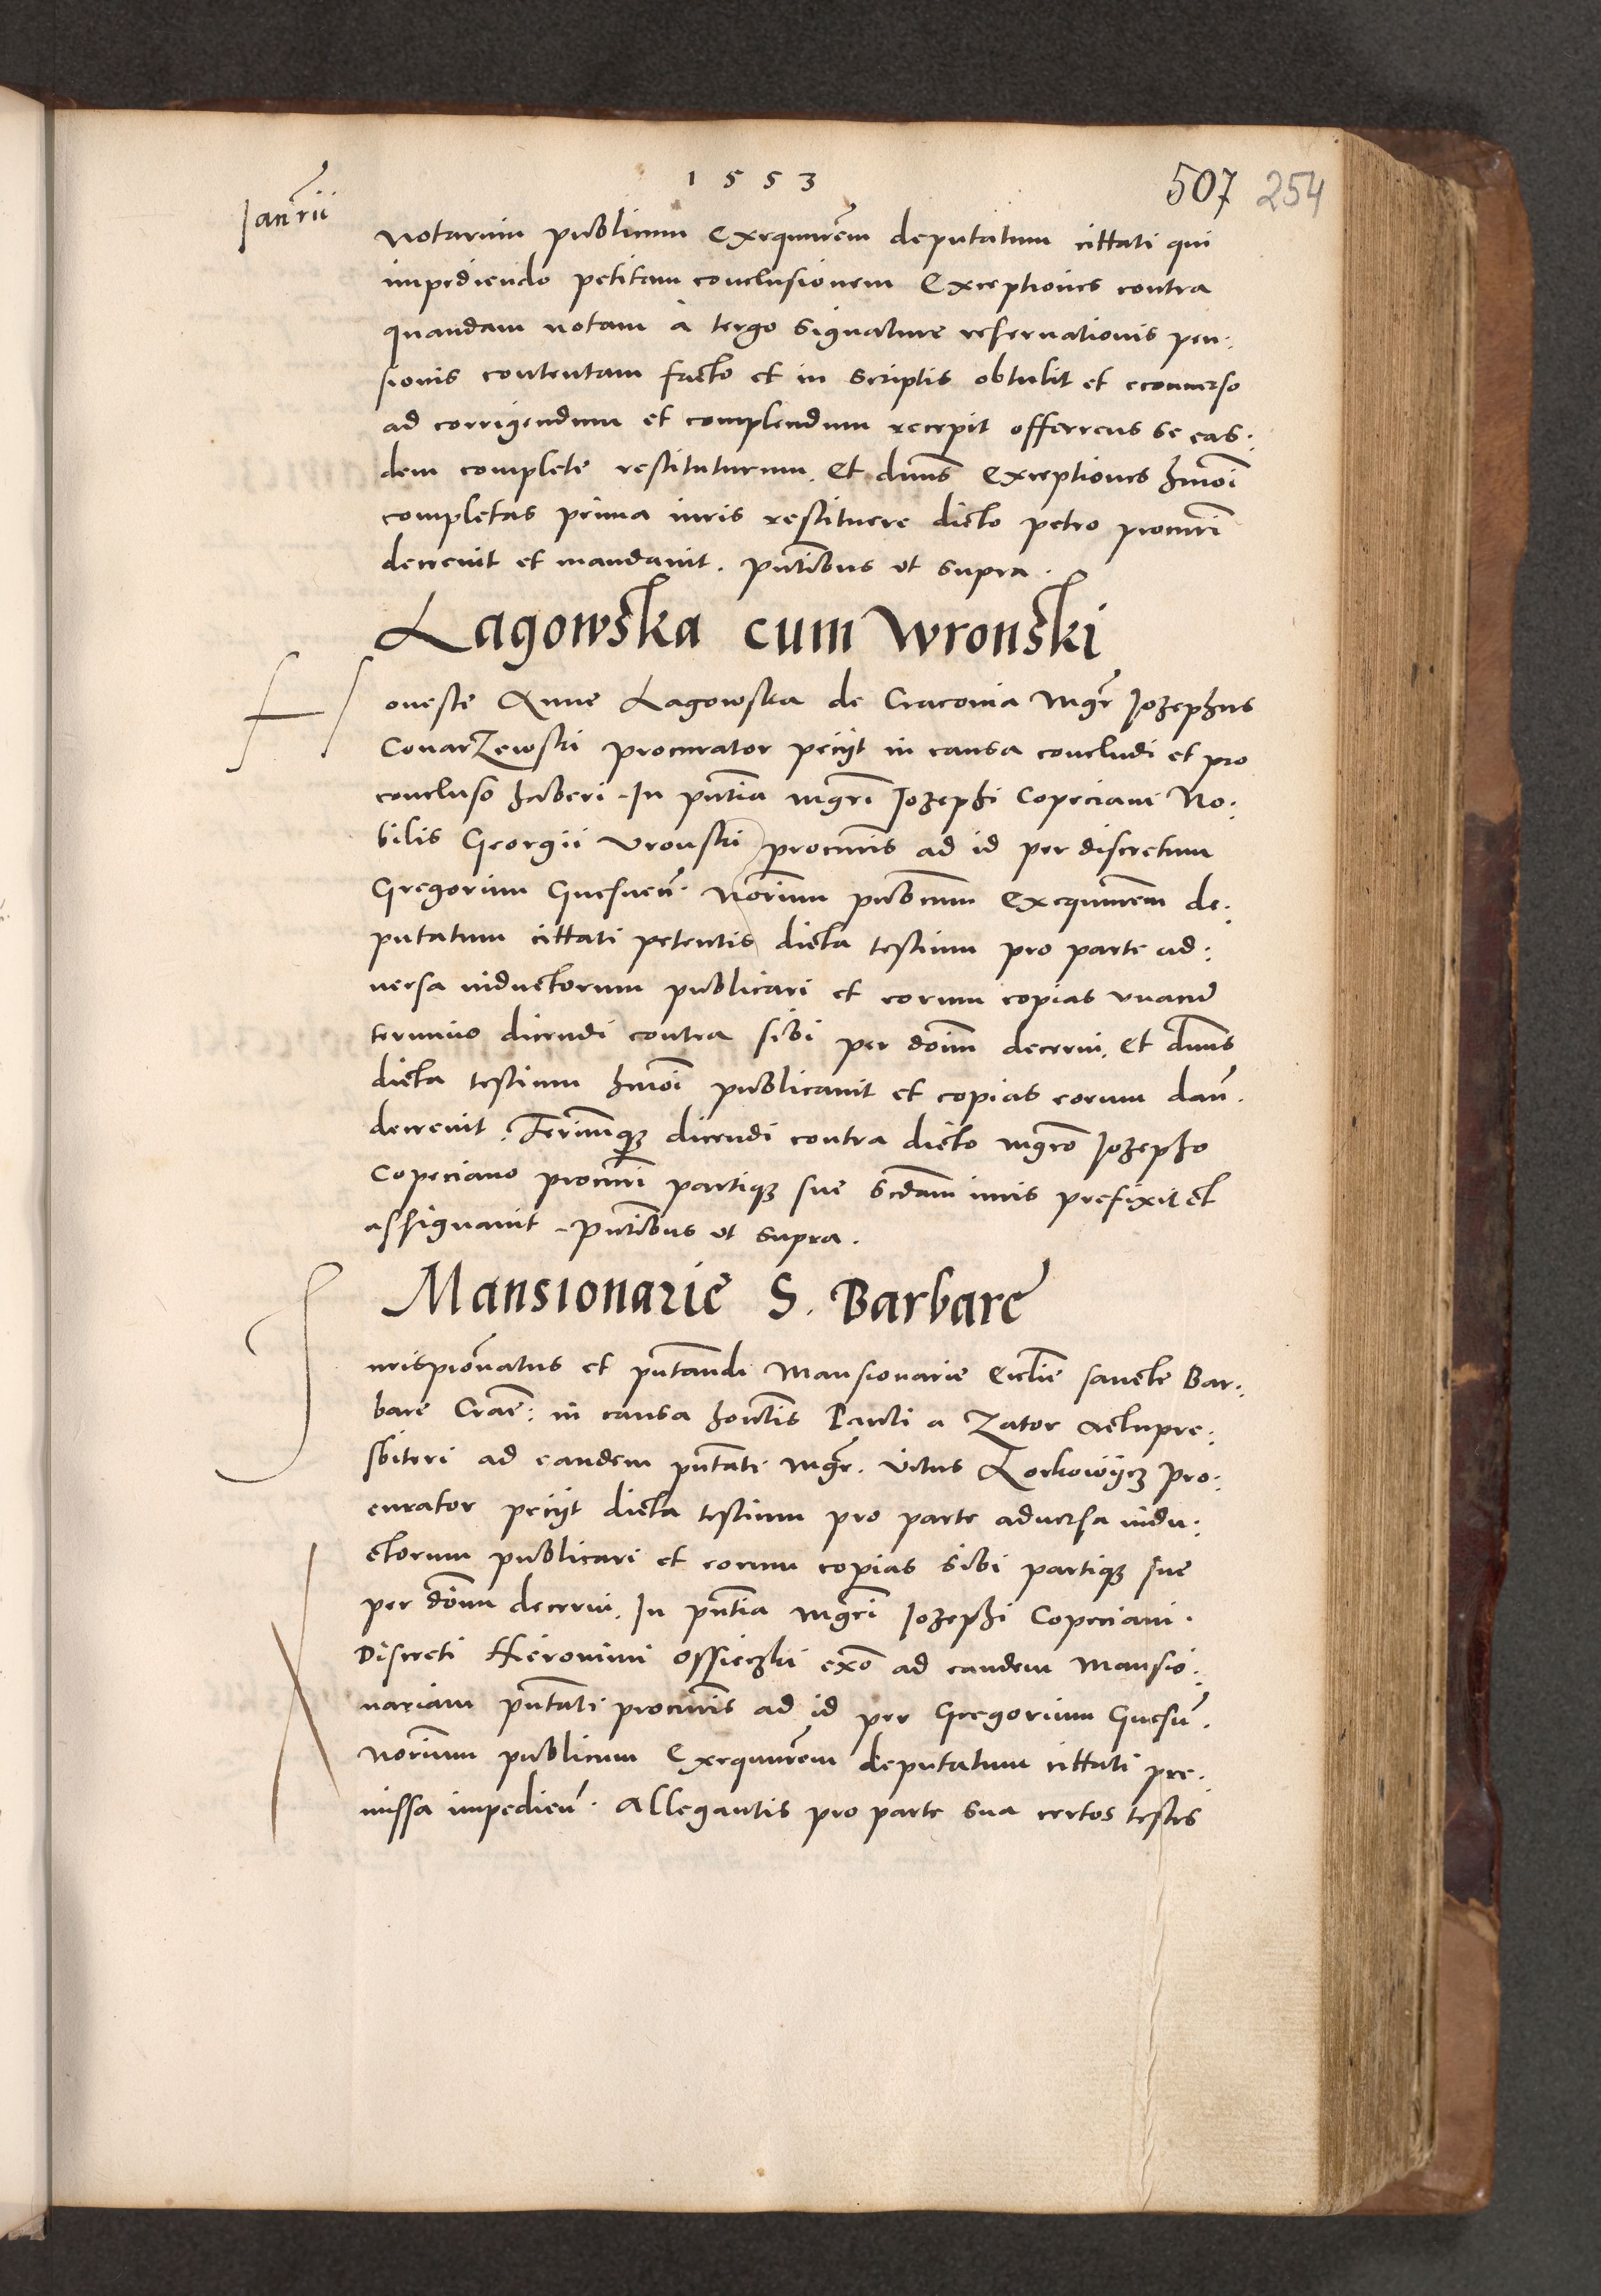 1553
507 254
Ianrii
notarium publicum Exequutrem deputatum cittati qui
impediendo petitam conclusionem Exceptiones contra
quandam notam a tergo signature reservationis pen:
sionis contentam facto et in scriptis obtulit et econverso
ad corrigendum et complendum recepit offerens se eas:
dem complete restituturum. Et dnus Exceptiones hmoi
completas prima iuris restituere dicto petro procuri
decrevit et mandavit. pntibus ut supra.
Lagowska cum Wronski
Honeste Anne Lagowska de Cracovia Mgr Iozephus
ConarZewski procurator peciyt in causa concludi et pro
concluso haberi. In pntia mgri Iozephi Copeciani No:
bilis Georgii Vronski procuris ad id per discretum
Gregorium Gnesnen. Norium publicum Exequutrem de:
putatum cittati petentis dicta testium pro parte ad:
versa inductorum publicari et eorum copias unacum
termino dicendi contra sibi per dominum decerni. Et dnus
dicta testium hmoi publicavit et copias eorum dan.
decrevit. Terminumque dicendi contra dicto mgro Iozepho
Copeciano procuri partique sue scdam iuris prefixit et
assignavit. pntibus ut supra.
Mansionarie S. Barbare
Iurispronatus et pntandi Mansionarie Ecclie sancte Bar:
bare Crac: in causa hontis Pauli a Zator Actupre:
sbiteri ad eandem pntati Mgr. Vitus Lorkowijcz pro:
curator peciyt dicta testium pro parte adversa indu:
ctorum publicari et eorum copias sibi partique sue
per dominum decerni. In pntia mgri Iozephi Copeciani.
Discreti Hieronimi Ossieczki exo ad eandem Mansio:
nariam pntati procuris ad id per Gregorium Gnesn.
Norium publicum Exequutrem deputatum cittati pre:
missa impedien. Allegantis pro parte sua certos testes